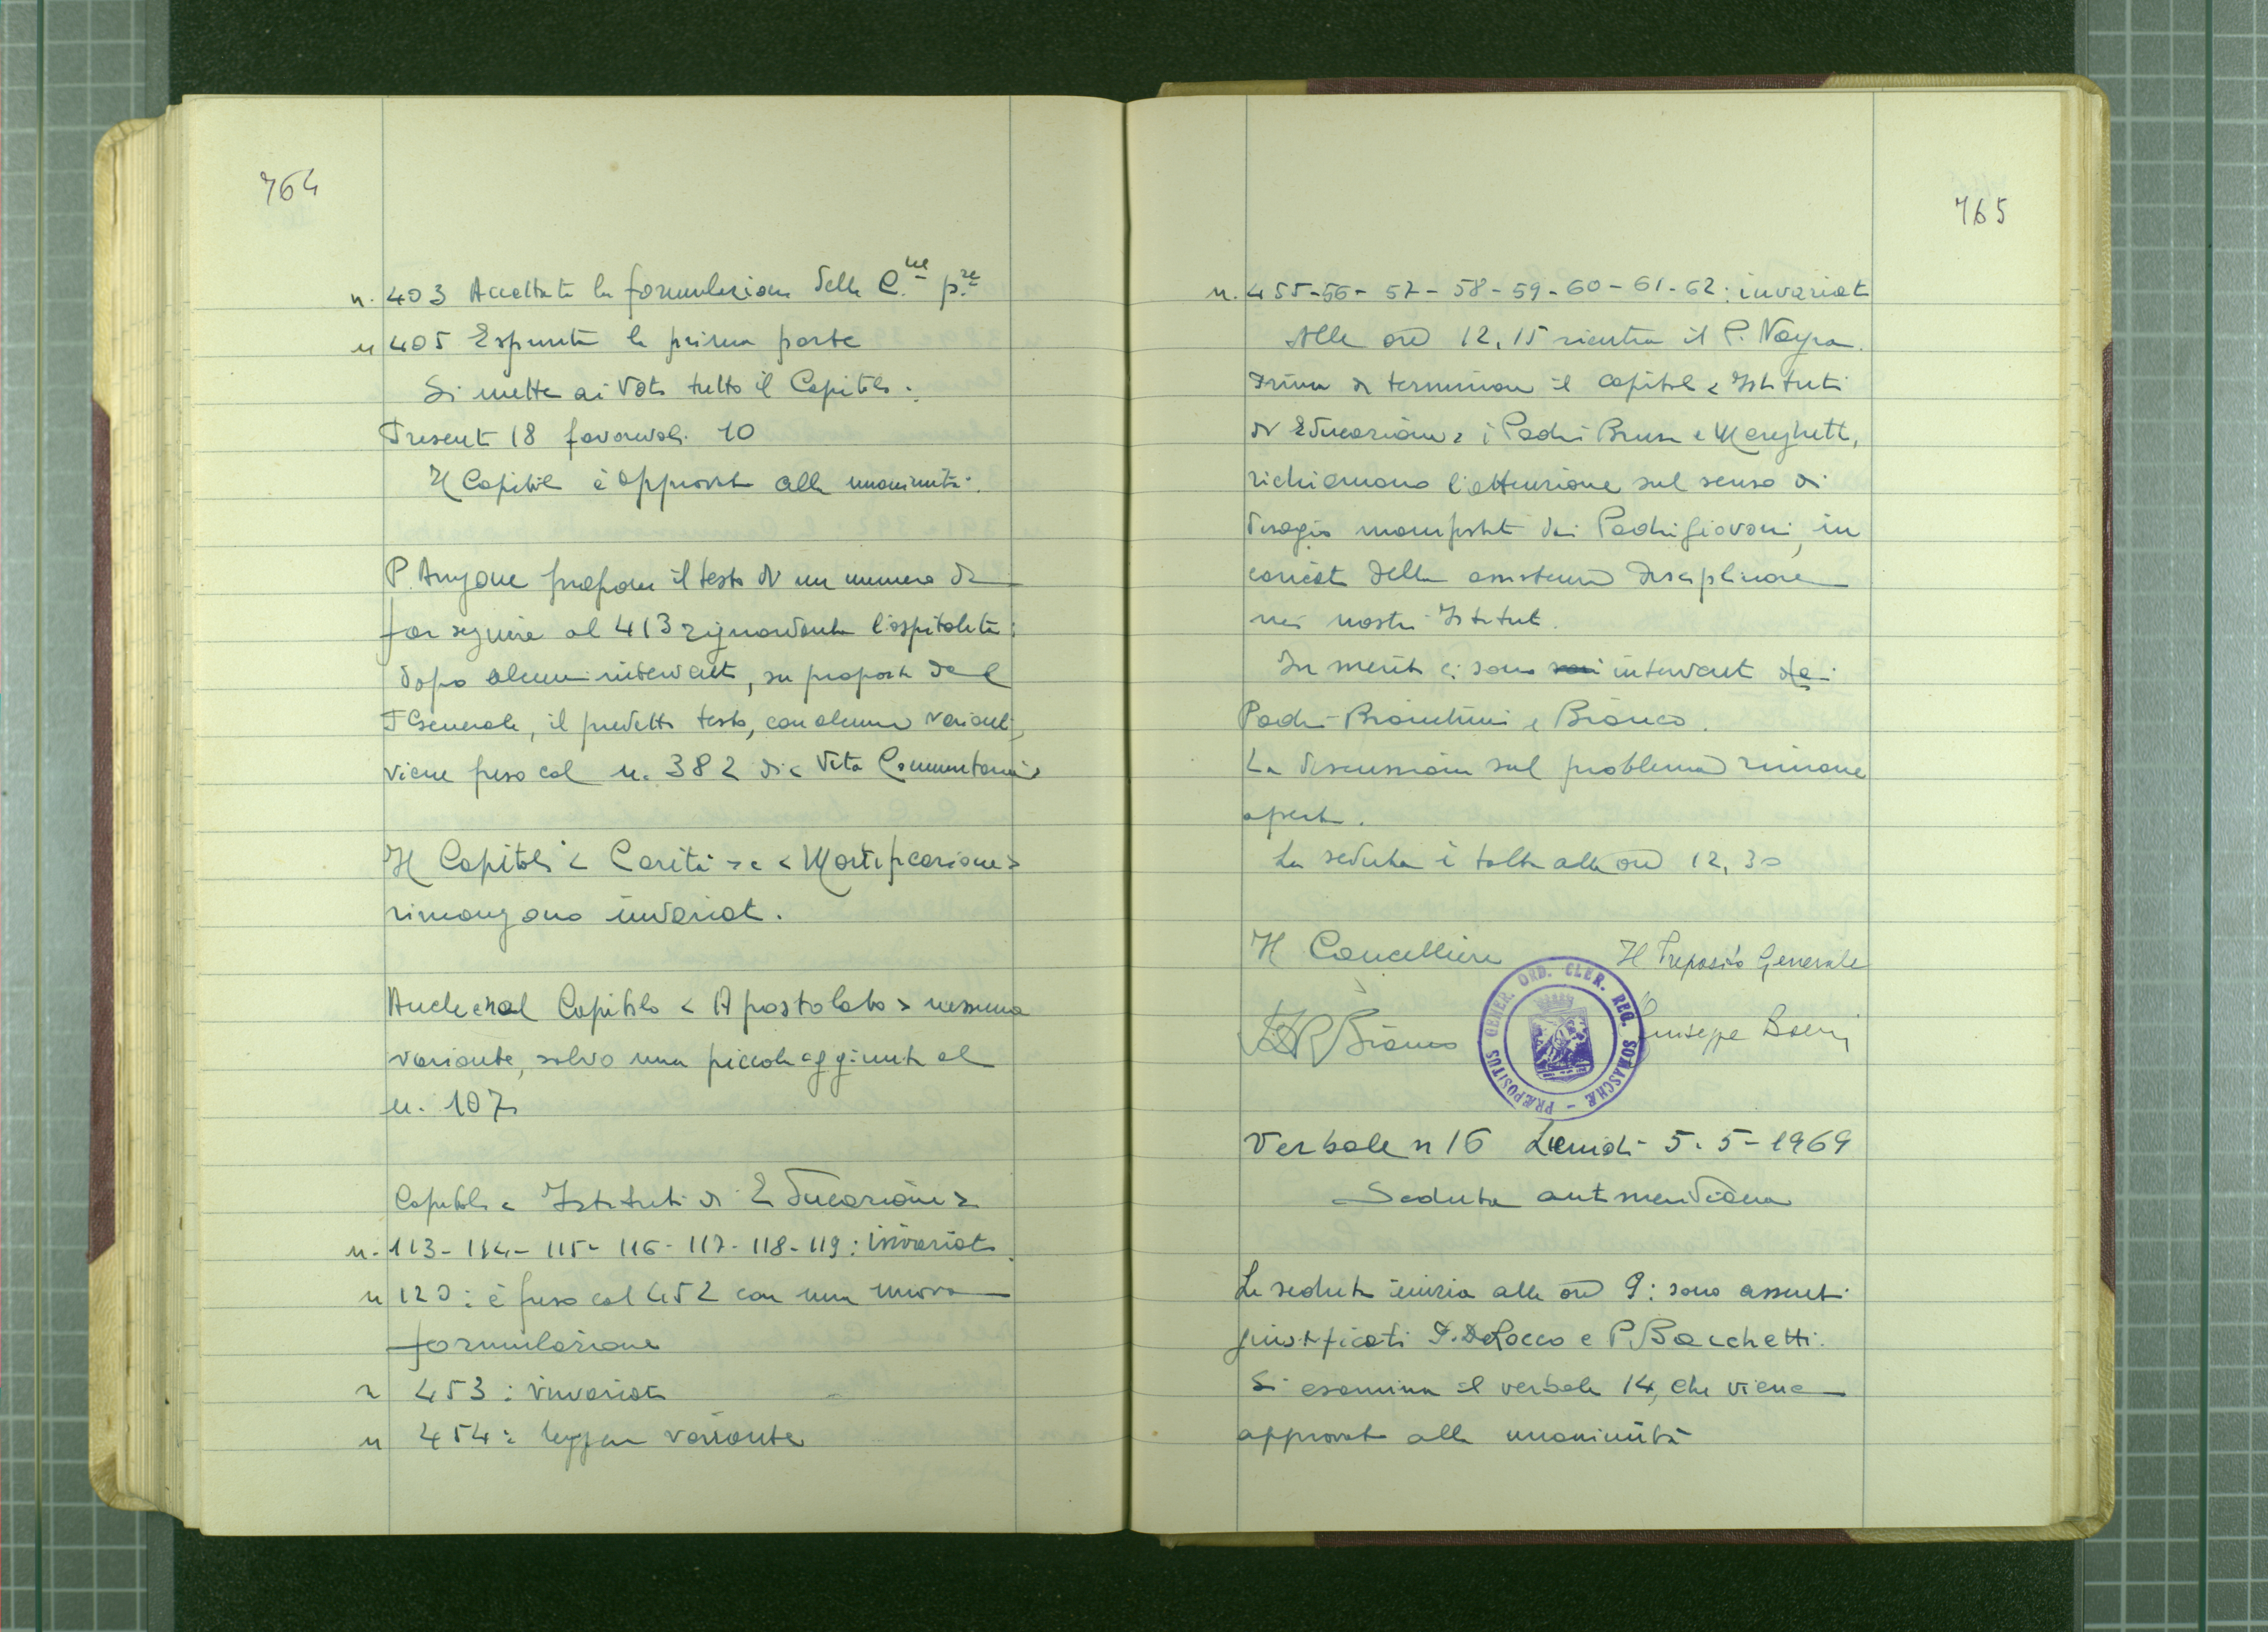 764
n. 403 Accettata la formulazione della C.ne p.re
n 405 Espunta la prima parte
Si mette ai voti tutto il Capitolo:
Presenti 18 favorevoli 10
Il Capitolo è approvato alla unanimità.
P. Arrigone propone il testo di un numero da
far seguire al 413 riguardante l'ospitalità:
dopo alcuni interventi, su proposta del
P Generale, il predetto testo, con alcune varianti,
viene preso col n. 382 di < Vita Comunitaria >
Il Capitoli < Carità > e < Mortificazione >
rimangono invariati.
Anche nel Capitolo < Apostolato > nessuna
variante, salvo una piccola aggiunta al
n. 107
Capitolo < Istituti di Educazione >
n. 113 - 114 - 115 - 116 - 117 - 118 - 119: invariati
n 120: è preso col 452 con una nuova
formulazione
n 453: invariato
n 454: leggera variante
765
n. 455-56-57-58-59-60-61-62: invariati
Alle ore 12,15 rientra il P.
Prima di terminare il capitolo < Istituti
di Educazione > i Padri Brusa e Mereghetti,
richiamano l'attenzione sul senso di
disagio manifestato dai Padri giovani, in
carico della assistenza disciplinare
nei nostri Istituti.
In merito ci sono interventi dei
Padri Brambini e Bianco.
La discussione sul problema rimane
aperta.
La seduta è tolta alle ore 12,30
Il Cancelliere Il Preposito Generale
Bianco Giuseppe Boeri
PRÆPOSITUS GENER. ORD. CLER. REG. SOMASCHÆ
Verbale n 16 Lunedì 5-5-1969
Seduta antimeridiana
La seduta inizia alle ore 9: sono assenti
giustificati P. De Rocco e P. Bacchetti.
Si esamina il verbale 14, che viene
approvato alla unanimità